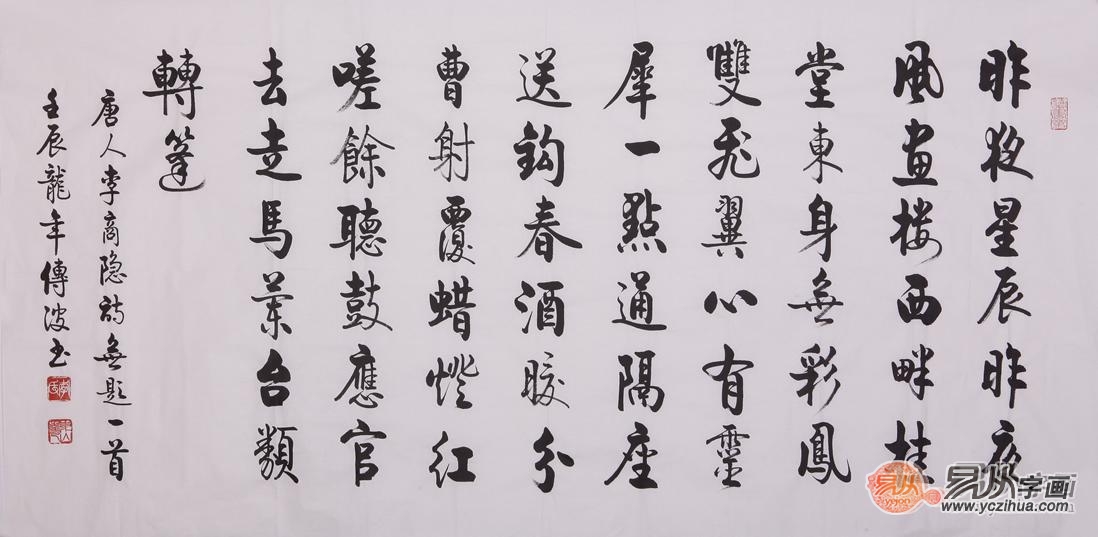 昨夜星辰昨夜
風畫楼西畔桂
堂東身無彩鳳
雙飛翼心有靈
犀一點通隔座
送鈎春酒暖分
曹射覆蜡燈紅
嗟餘聽鼓應官
去走馬蘭台類
轉篷
唐人李商隐詩無題一首
壬辰龍年傳波书
易从字画
www.yczihua.com